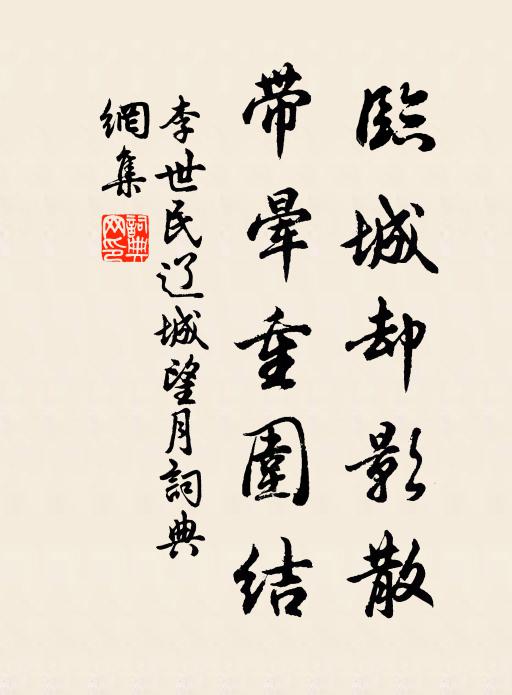 臨城却影散
帶暈重圍結
李世民辽城望月詞典
網集
詞典
网印